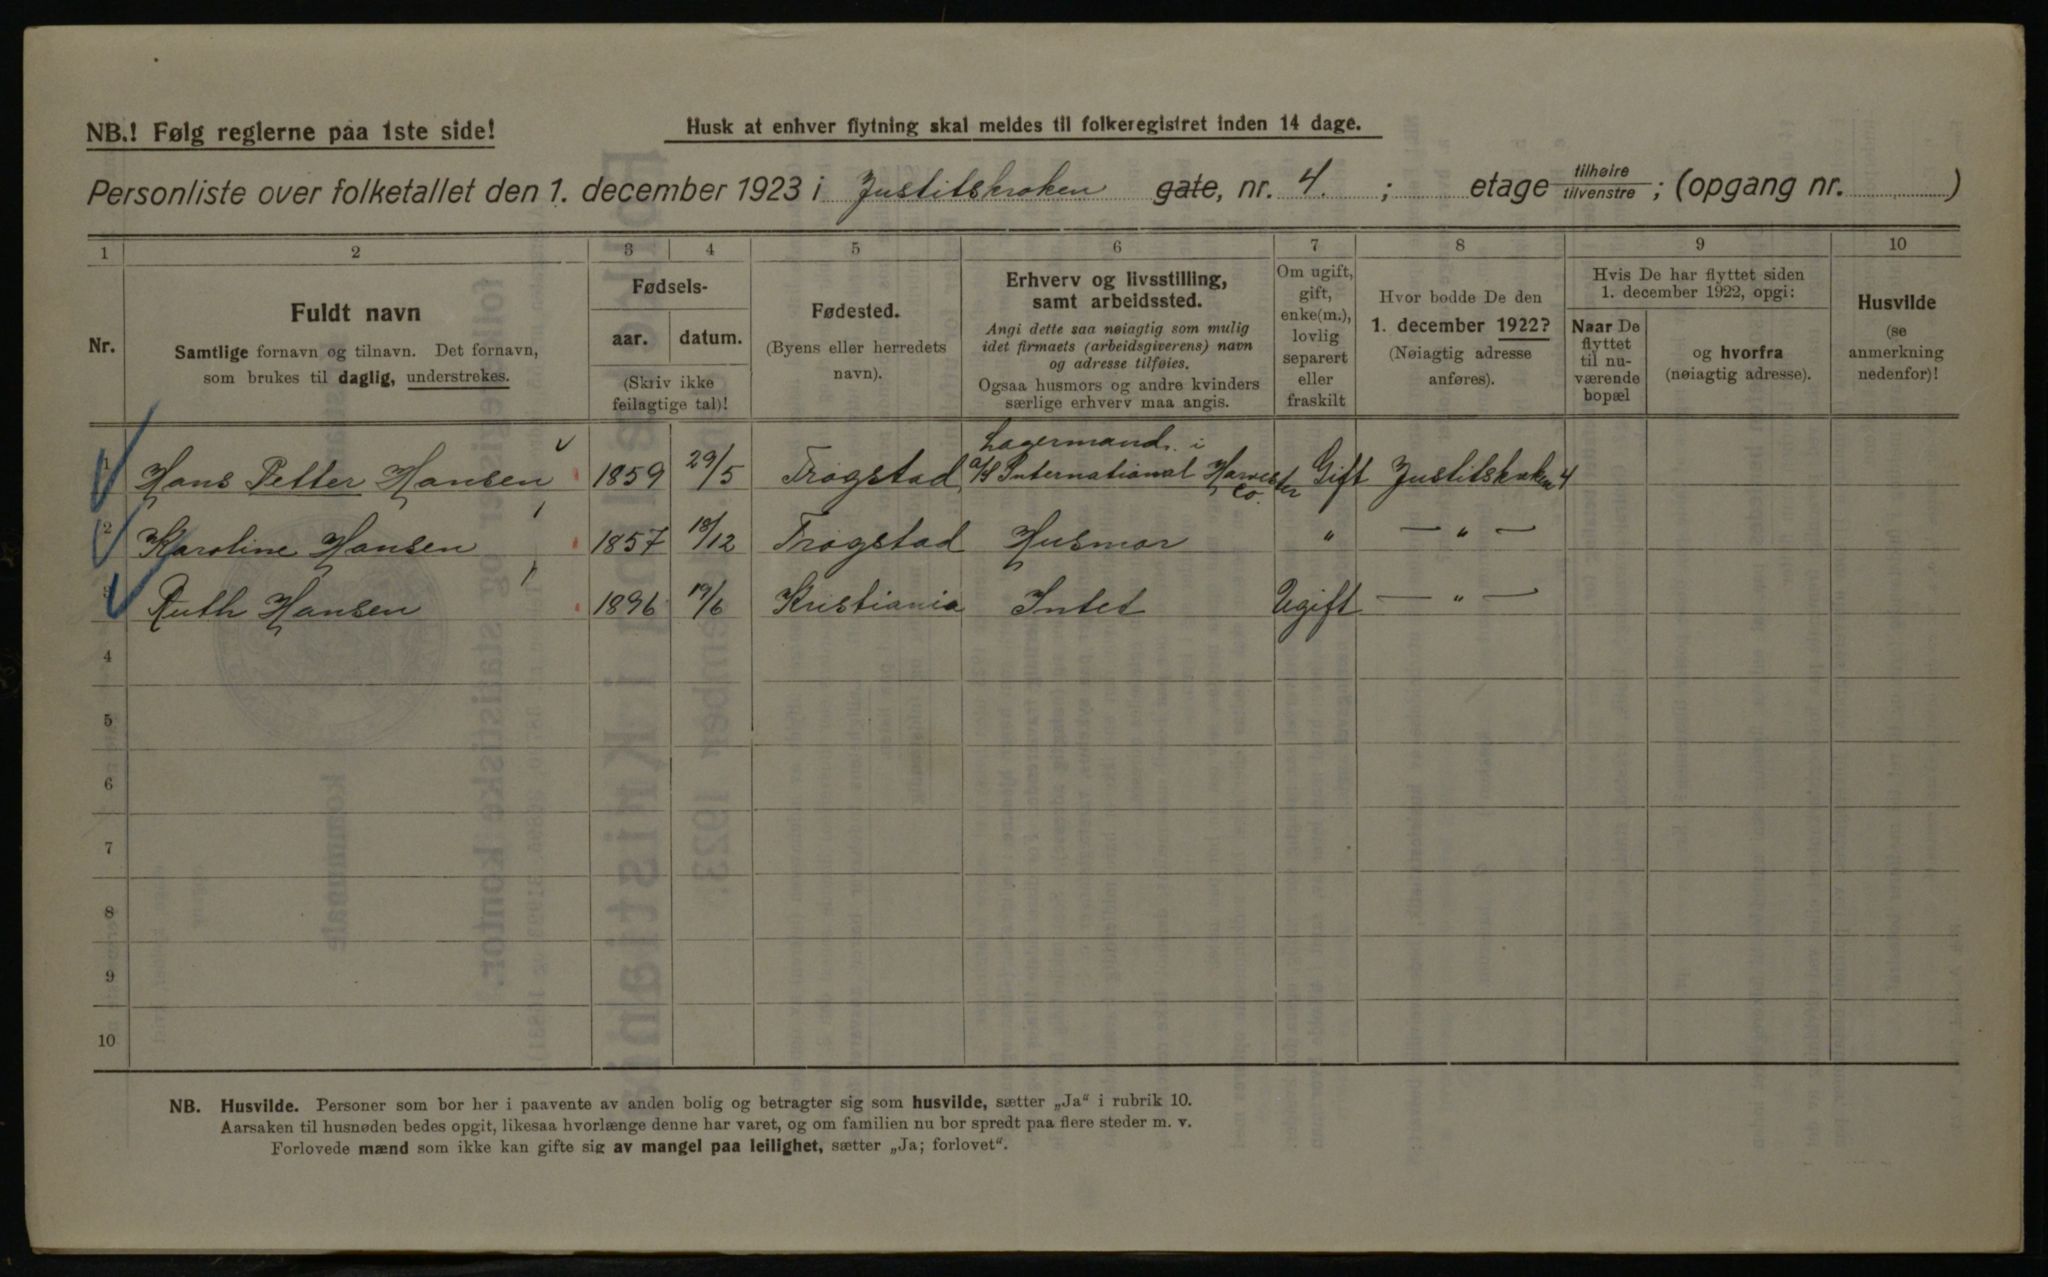 NB.! Følg reglerne paa 1ste side!
Husk at enhver flytning skal meldes til folkeregistret inden 14 dage.
Personliste over folketallet den 1. december 1923 i Justitskroken gate, nr. 4. ; etage tilhøire tilvenstre ; (opgang nr. )
1 2 3 4 5 6 7 8 9 10
Nr.
Fuldt navn
Samtlige fornavn og tilnavn. Det fornavn,
som brukes til daglig, understrekes.
Fødsels-
aar. datum.
(Skriv ikke
feilagtige tal)!
Fødested.
(Byens eller herredets
navn).
Erhverv og livsstilling,
samt arbeidssted.
Angi dette saa nøiagtig som mulig
idet firmaets (arbeidsgiverens) navn
og adresse tilføies.
Ogsaa husmors og andre kvinders
særlige erhverv maa angis.
Om ugift,
gift,
enke(m.),
lovlig
separert
eller
fraskilt
Hvor bodde De den
1. december 1922?
(Nøiagtig adresse
anføres).
Hvis De har flyttet siden
1. december 1922, opgi:
Naar De
flyttet
til nu-
værende
bopæl
og hvorfra
(nøiagtig adresse).
Husvilde
(se
anmerkning
nedenfor)!
Lagermand. i
1 Hans Petter Hansen 1859 29/5 Trøgstad A/S International Harvester Co. Gift Justitskroken 4
2 Karoline Hansen 1857 18/12 Trøgstad Husmor " — " —
3 Ruth Hansen 1896 19/6 Kristiania Intet Ugift — " —
4
5
6
7
8
9
10
NB. Husvilde. Personer som bor her i paavente av anden bolig og betragter sig som husvilde, sætter „Ja“ i rubrik 10.
Aarsaken til husnøden bedes opgit, likesaa hvorlænge denne har varet, og om familien nu bor spredt paa flere steder m. v.
Forlovede mænd som ikke kan gifte sig av mangel paa leilighet, sætter „Ja; forlovet“.